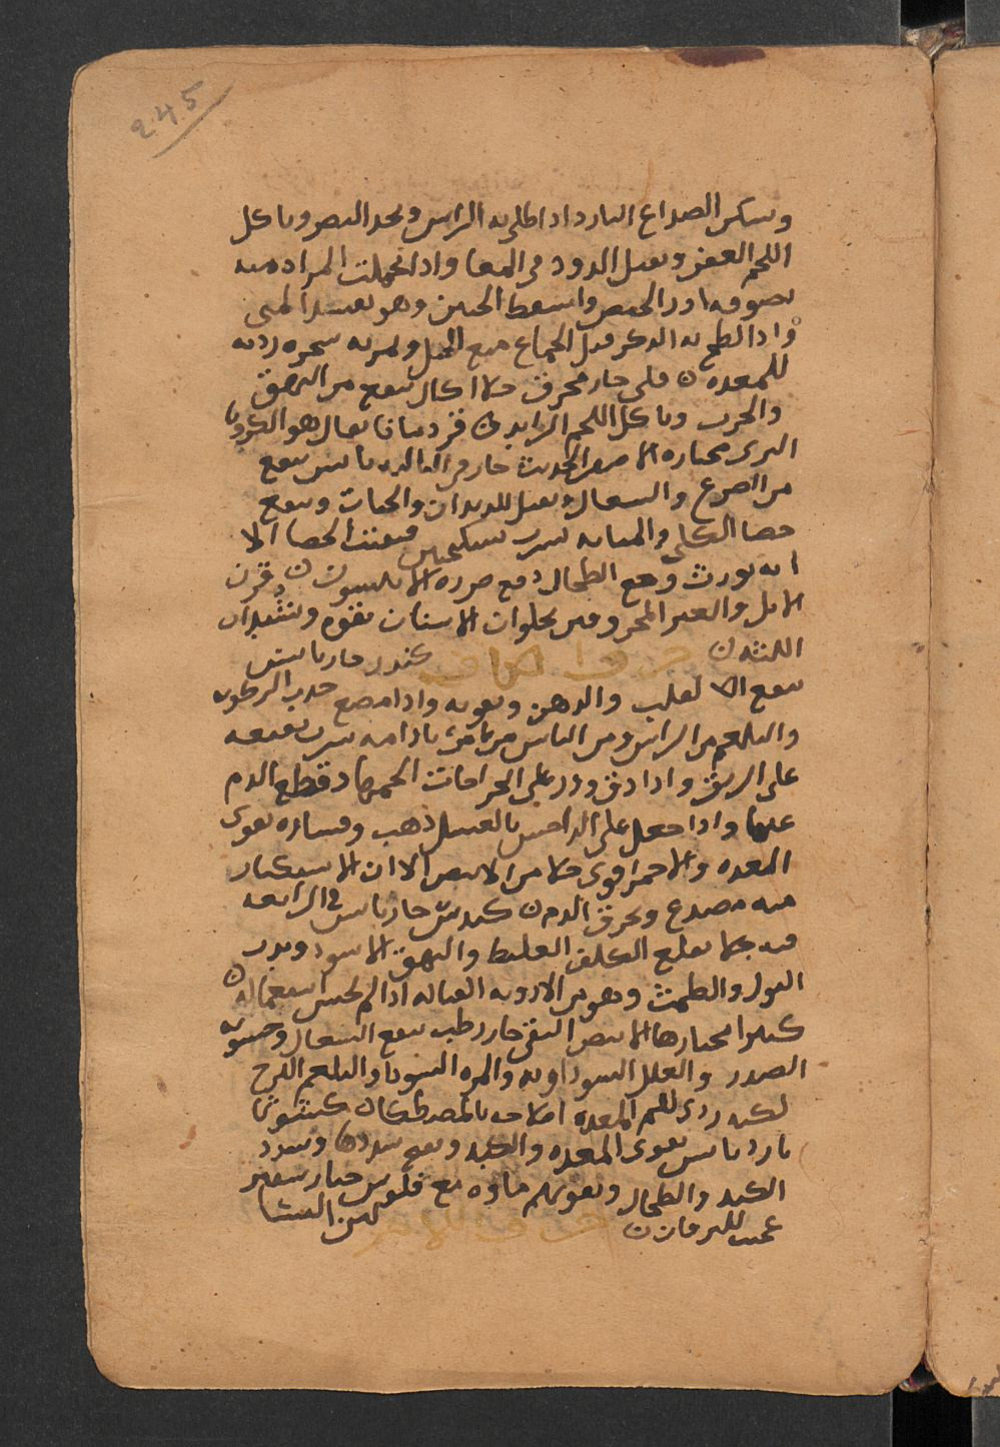 245
وسكن الصداع البارد اذا طلى به الراس ويحد البصر وياكل
اللحم العفن ويقتل الدود في المعا واذا تحملت المراة منه
بصوفه ادر الحيض واسقط الجنين وهو يفسد المنى
واذا لطخ به الذكر قبل الجماع منع الحبل
للمعدة قلى حار محرق جلا اكال ينفع من البهق
والجرب وياكل اللحم الزايد قردمانا يقال هو الكرويا
البرى مختاره الاصفر الحديث حار في الثالثه يابس ينفع
من الصرع والسعال ويقتل الديدان والحيات وينفع
حصا الكلى والمثانه شرب سكنجبين فيفتت الحصا الا
انه يورث وجع الطحال دفع ضرره الانيسون قرن
الايل والعنز المحروقين يجلوان الاسنان بقوه ويشدان
اللثه حرف الكاف كندر حار يابس
ينفع القلب والذهن ويقويه واذا مضغ جذب الرطوبه
والبلغم من الراس ومن الناس من يامر بادامه شرب نقيعه
على الريق واذا دق وذر على الجراحات الحمها وقطع الدم
عنها واذا جعل على الداحس بالعسل ذهب وقشاره يقوى
المعده والاحمر اقوى جلا من الابيض الا ان الاستكثار
منه مصدع ويحرق الدم كندس حار يابس في الرابعه
فيه جلا يقلع الكلف الغليظ والبهق الاسود ويدر
البول والطمث وهو من الادويه القتاله اذا لم يحسن استعماله
كثيرا مختارها الابيض النقى حار رطب ينفع السعال وخشونه
الصدر والعلل السوداويه والمره السودا والبلغم اللزج
لكنه ردى للمعدة اصلاحه بالمصطكا كشوثا
بارد يابس يقوى المعده والكبد ويفتح سددها وسدد
الكبد والطحال ويقويهم ماوه مع فلوس خيار شنبر
عجيب لليرقان حرف اللام لبن النسا